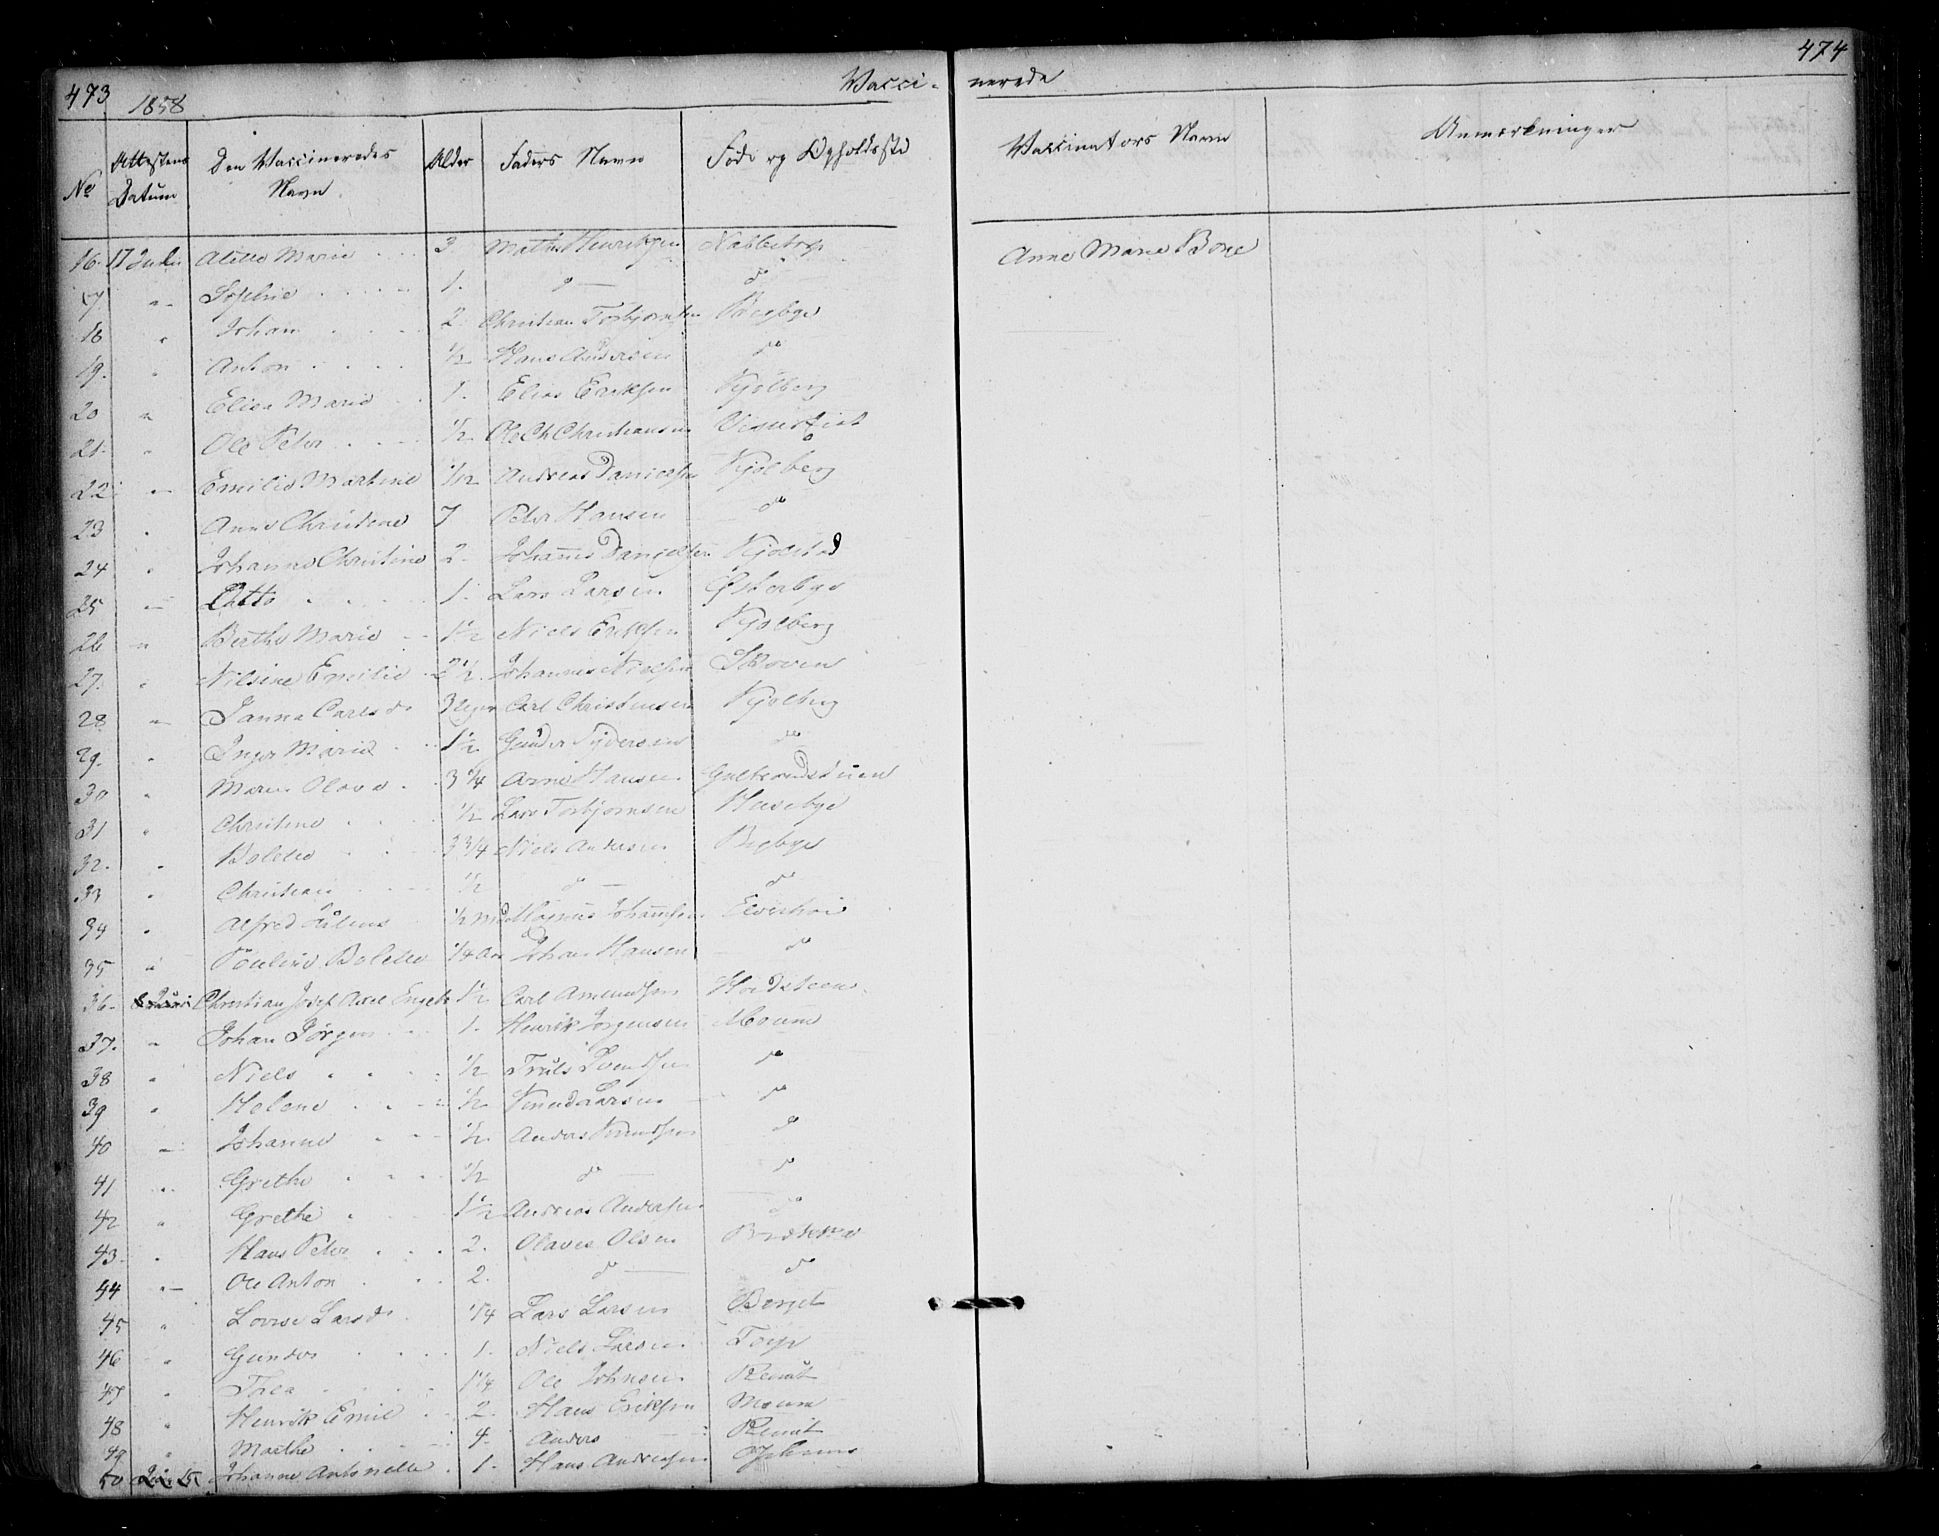 473
474
1858
Vacci-
nerede
No
Attestens Datum
Den Vaccineredes Navn
Alder
Faders Navn
Føde og Opholdssted
Vaccinators Navn
Anmærkninger
16. 17 Juli Marie 3 Mathis Henriksen Nabbetorp Anne Marie Boxe
17 " Sophie 1. do do
18 " Johan 2 Christian Torbjørnsen Bergbye
19. " Anton 1/2 Hans Andersen do
20 " Elise Marie 1. Elias Eriksen Kjølberg
21. " Ole Peter 1/2 Ole Ch Christiansen
22. " Emilie Martine 1/12 Andreas Danielsen Kjølberg
23 " Anne Christine 7 Peter Hansen do
24 " Johanne Christine 2. Johannes Danielsen Kjølstad
25 " 1. Lars Larsen Østerbye
26 " Berthe Marie 1 1/2 Niels Eriksen Kjølberg
27. " Nilsine Emilie 2 1/2. Johannes Nielsen Skoven
28 " Janna Carlsdr 3 Uger Carl Christensen Kjølberg
29. " Inger Marie 1 1/2 Gunder Syversen do
30 " Maren Olava 3 1/4 Arne Hansen
31 " Christine 1/2 Lars Torbjørnsen Huusebye
32. " Bolette 3 3/4 Niels Andersen Bigbye
33 " Christian 1/2 do do
34 " Alfred Julius 1/2 Magnus Johannesen
35 " Pauline Bolette 1/4 Aar Johan Hansen do
36. 8 Juni Christian Josef Axel Engels 1 1/2 Carl Amundsen
37. " Johan Jørgen 1. Henrik Jørgensen Moum
38 " Niels 1/2 Truls Svendsen do
39 " Helene 1/2 Knud Larsen do
40 " Johanne 1/2 Anders Knudsen do
41 " Grethe 1/2 do do
42 " Grethe 1 1/2 Andreas Andersen do
43. " Hans Peter 2. Olaves Olsen
44 " Ole Anton 2. do do
45 " Lovise Larsdr 1/4 Lars Larsen Berget
46 " Gunder 1. Niels Larsen Torp
47 " Thea 1 1/4 Ole Johnsen
48 " Henrik Emil 2. Hans Eriksen Moum
49 " Marthe 4. Anders
50 Johanne Antonette 1. Hans Andersen